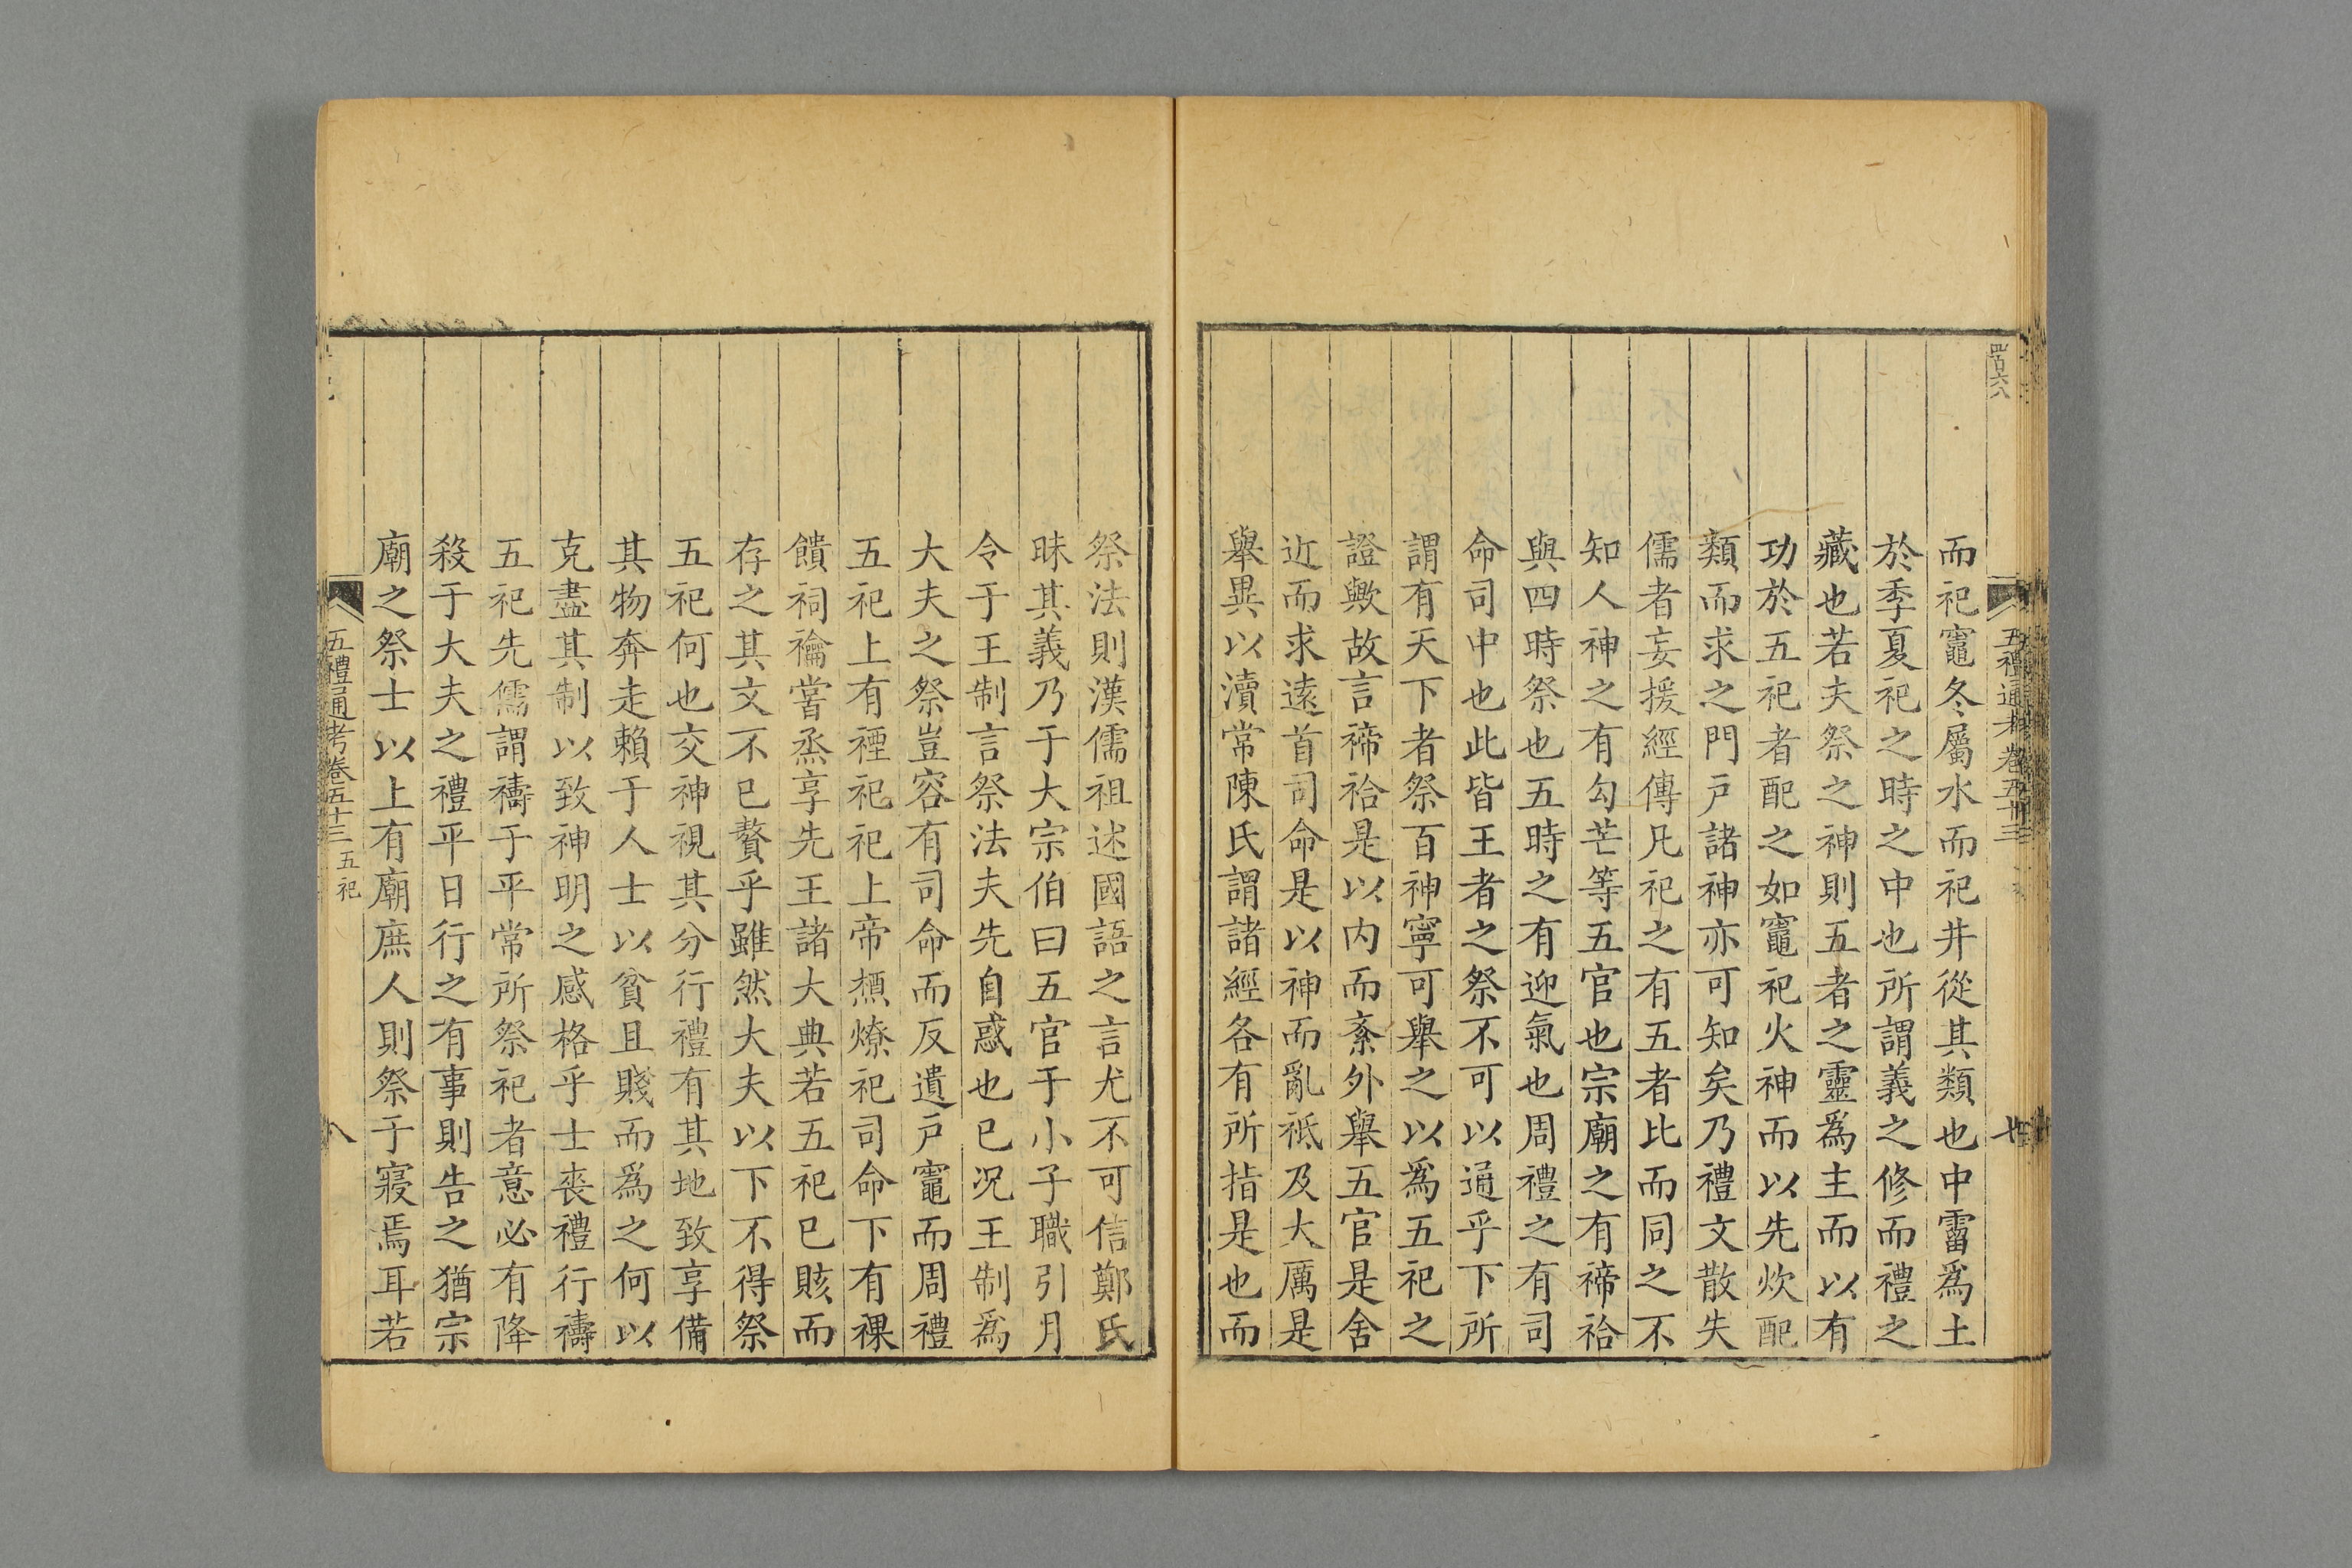 而祀竈冬屬水而祀井從其類也中霤爲土
於季夏祀之時之中也所謂義之修而禮之
藏也若夫祭之神則五者之靈爲主而以有
功於五祀者配之如竈祀火神而以先炊配
類而求之門戶諸神亦可知矣乃禮文散失
儒者妄援經傳凡祀之有五者比而同之不
知人神之有勾芒等五官也宗廟之有禘祫
與四時祭也五時之有迎氣也周禮之有司
命司中也此皆王者之祭不可以通乎下所
謂有天下者祭百神寧可舉之以爲五祀之
證歟故言禘祫是以内而紊外舉五官是舍
近而求遠首司命是以神而亂祇及大厲是
舉異以瀆常陳氏謂諸經各有所指是也而
祭法則漢儒祖述國語之言尤不可信鄭氏
昧其義乃于大宗伯曰五官于小子職引月
令于王制言祭法夫先自惑也已况王制爲
大夫之祭豈容有司命而反遺戶竈而周禮
五祀上有禋祀祀上帝槱燎祀司命下有祼
饋祠禴嘗烝享先王諸大典若五祀已賅而
存之其文不已贅乎雖然大夫以下不得祭
五祀何也交神視其分行禮有其地致享備
其物奔走賴于人士以貧且賤而爲之何以
克盡其制以致神明之感格乎士喪禮行禱
五祀先儒謂禱于平常所祭祀者意必有降
殺于大夫之禮平日行之有事則告之猶宗
廟之祭士以上有廟庶人則祭于寢焉耳若
五禮通考卷五十三 五祀
八